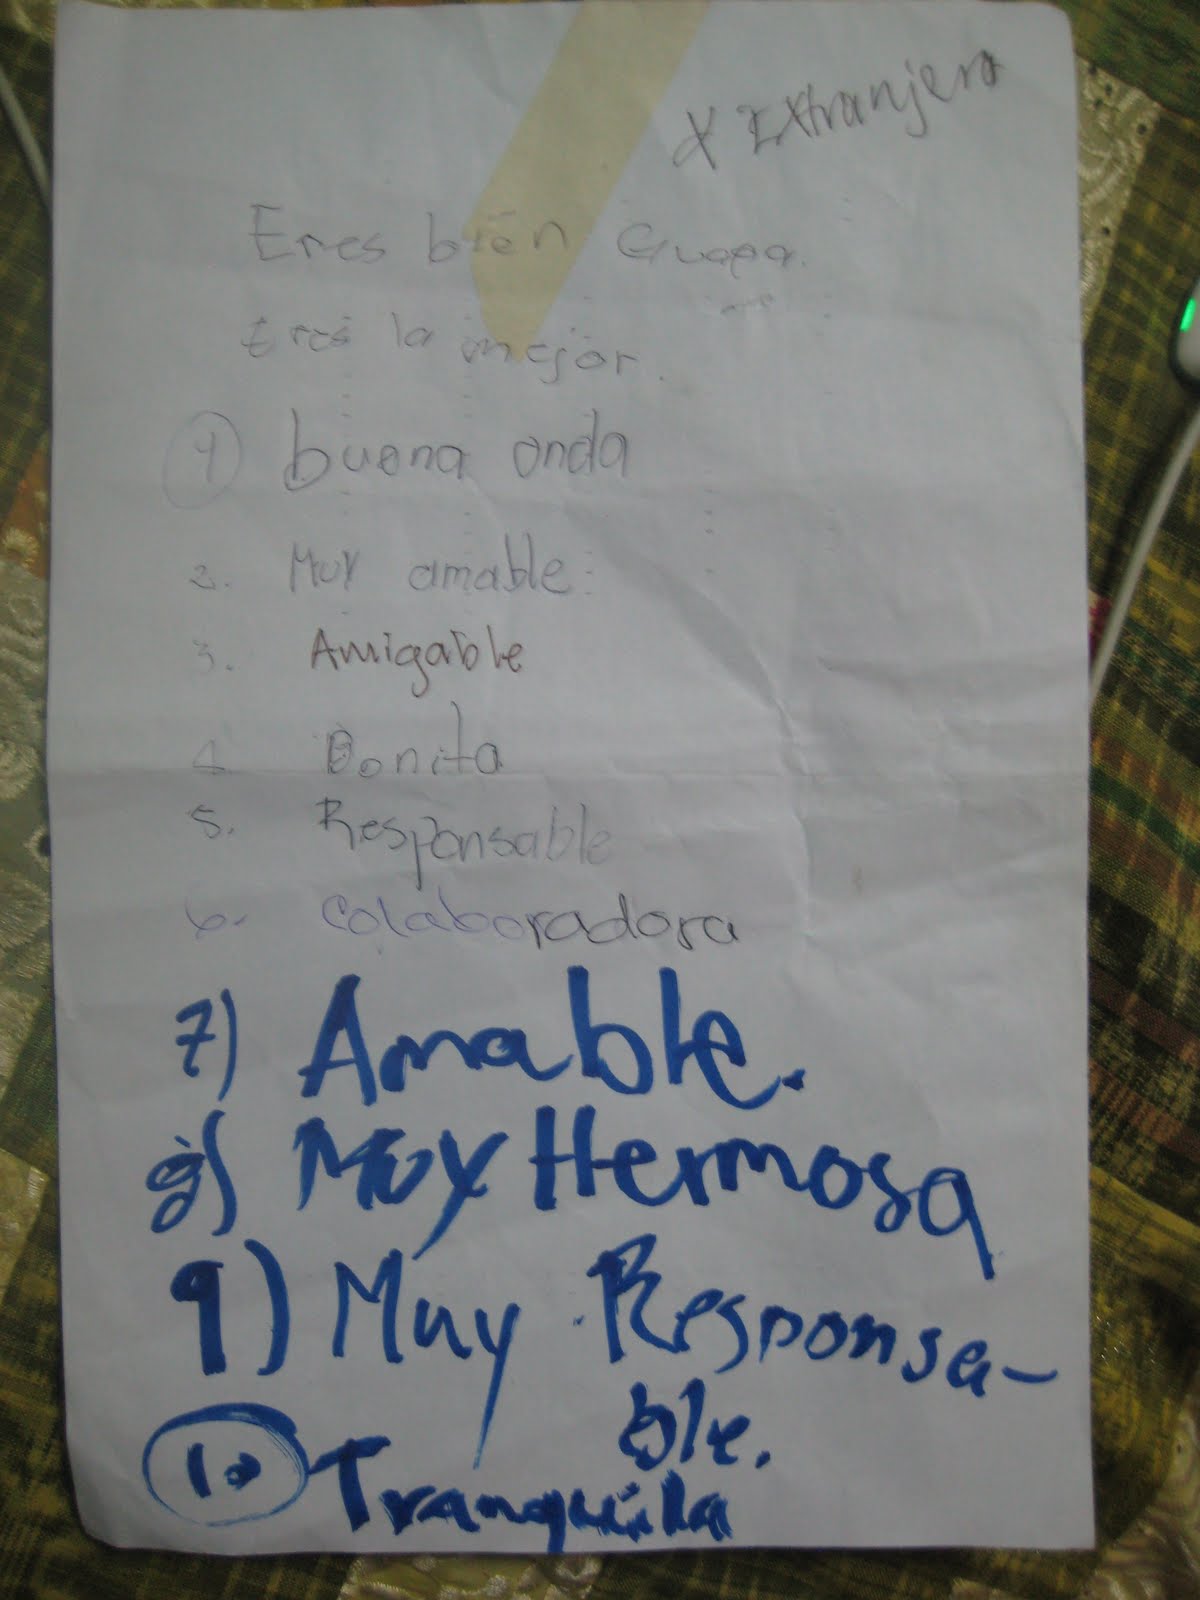 X Extranjera
Eres bien Guapa.
Eres la mejor.
1 buena onda
2. Muy amable.
3. Amigable
4 Bonita
5. Responsable
6. Colaboradora
7) Amable.
8) Muy Hermosa
9) Muy Responsa-
ble.
10 Tranquila